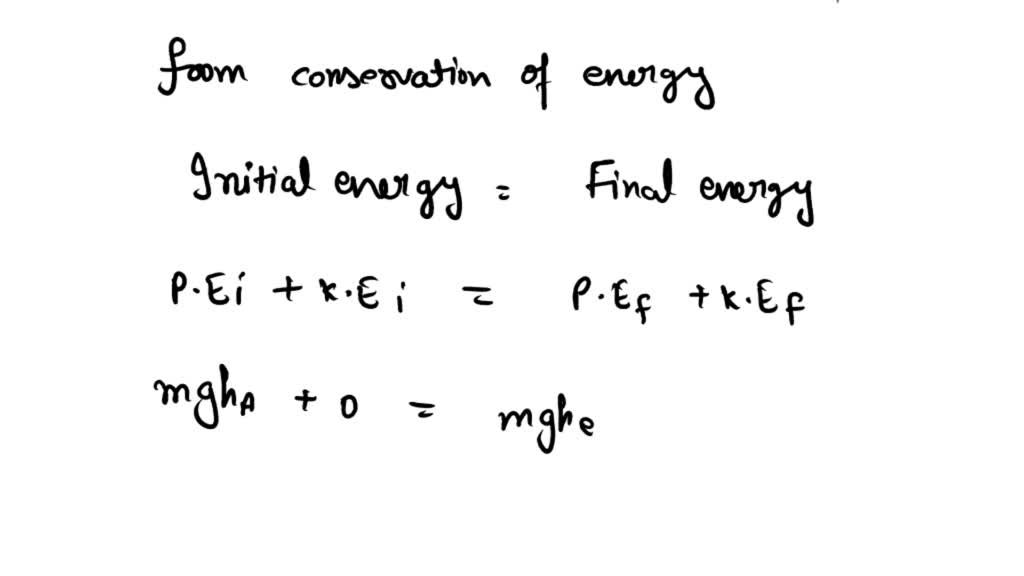 from conservation of energy
Initial energy = Final energy
P.Ei + K.Ei = P.Ef + K.Ef
mghA + 0 = mghe